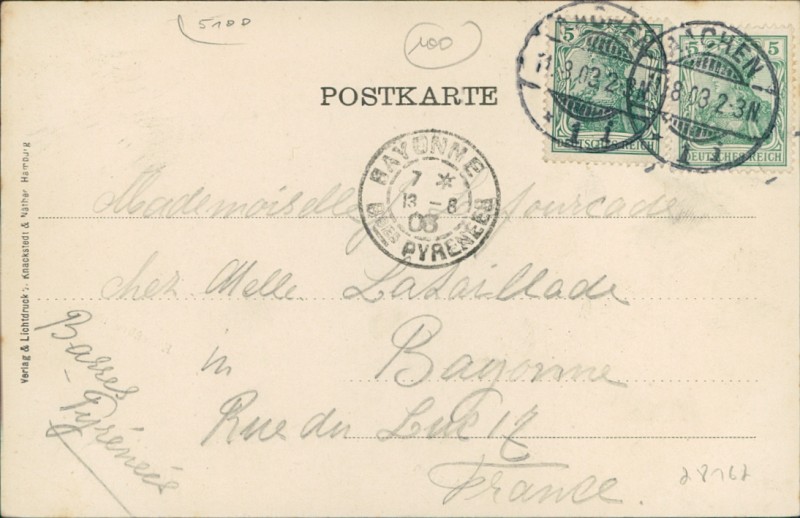 5100
100
POSTKARTE
AACHEN
11.8.03.2-3N.
* 1 i
AACHEN
11.8.03.2-3N.
* 1 i
5
DEUTSCHES REICH
5 5
DEUTSCHES REICH
BAYONNE
7 *
13 - 8
03
BSES PYRENEES
Mademoiselle
chez Melle Lataillade
in Bayonne
Rue du Luc 17
France.
Basses
- Pyrénées
28162
Verlag & Lichtdruck v. Knackstedt & Näther, Hamburg